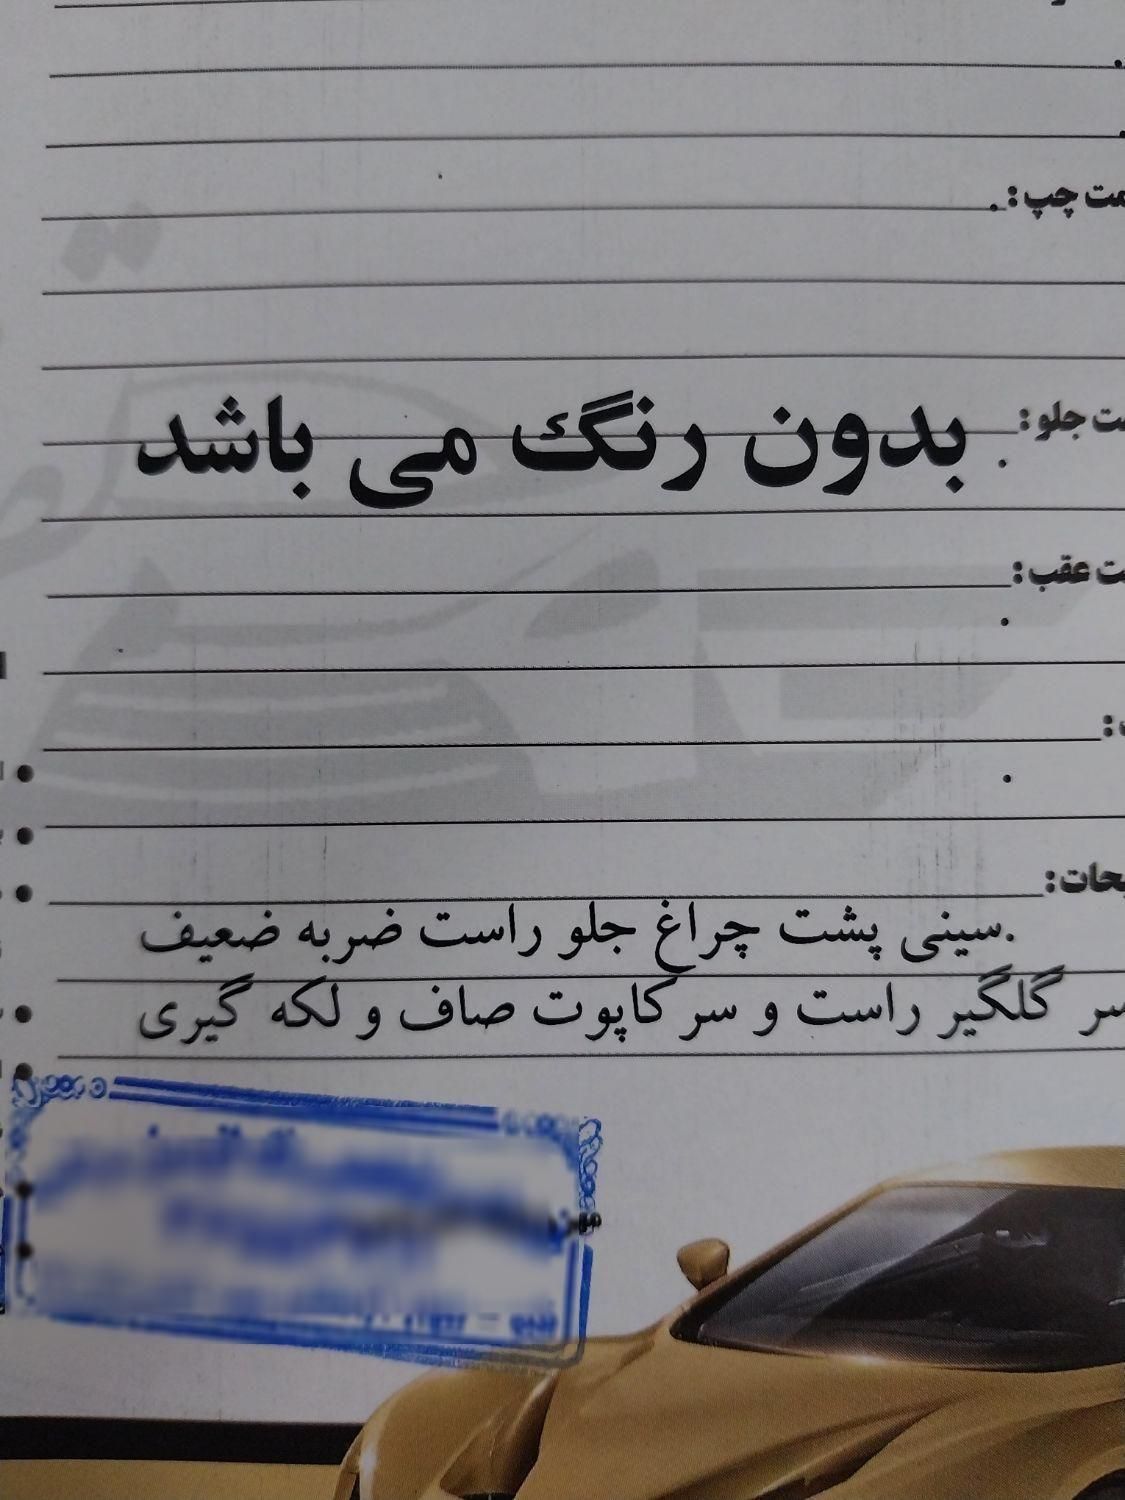 چپ :
جلو :
بدون رنگ می باشد
عقب :
.سینی پشت چراغ جلو راست ضربه ضعیف
سر گلگیر راست و سر کاپوت صاف و لکه گیری